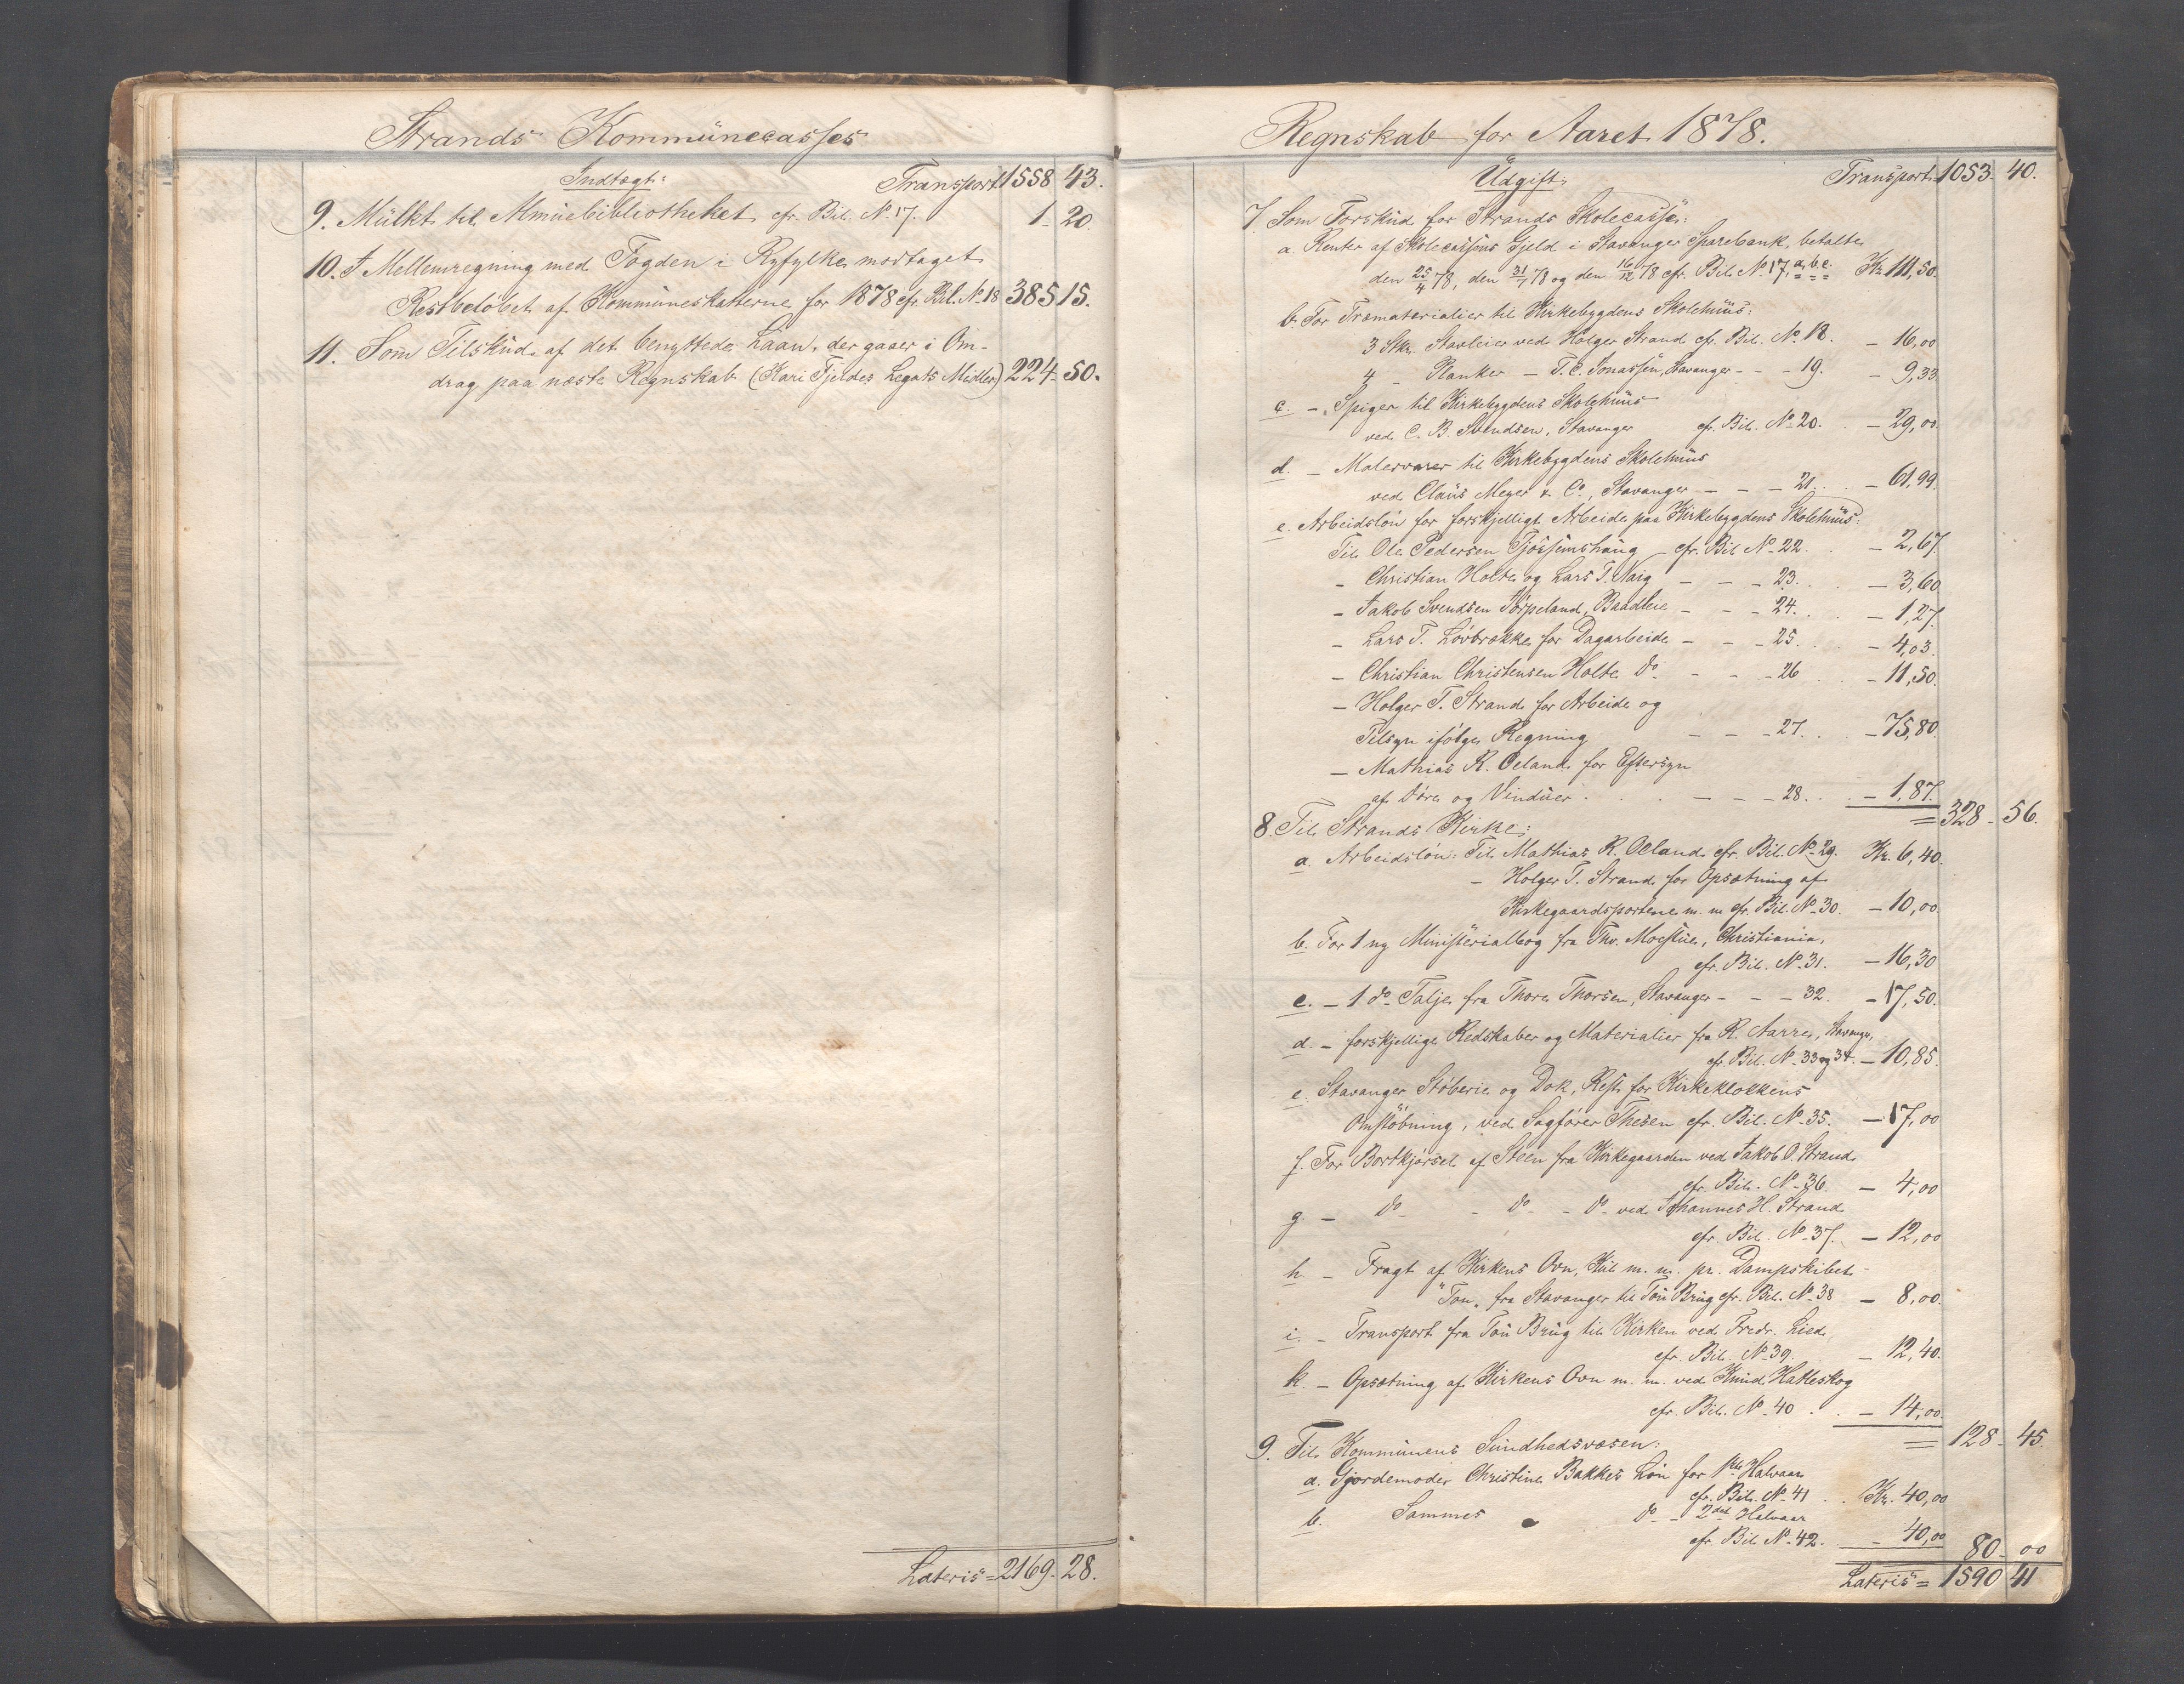 Strands Kommünecasses
Indtægt:
Transport 1558 43.
9. Mülkt til Almüebibliotheket cfr. Bil. No. 17. 1 - 20.
10. I Mellemregning med Fogden i Ryfylke modtaget
Restbeløbet af Kommüneskatterne for 1878 cfr. Bil. No. 18 385 15.
11. Som Tilskud af det benyttede Laan, der gaaer i Om-
drag paa næste Regnskab (Kari Fjeldes Legats Midler) 224 - 50.
Lateris = 2169 - 28.
Regnskab for Aaret 1878.
Üdgift:
Transport 1053 - 40.
7. Som Forskud for Strands Skolecasse:
a. Renter af Skolecassens Gjeld i Stavanger Sparebank, betalte
den 25/4 78, den 31/7 78 og den 16/12 78 cfr. Bil. No. 17, a, b, c. Kr. 111,50.
b. For Træmaterialier til Kirkebygdens Skolehüüs:
3 Stkr. Stavleier ved Holger Strand cfr. Bil. No. 18. - 16,00
4 - Planker - T. C. Jonassen, Stavanger - - - 19. - 9,33
c. - Spiger til Kirkebygdens Skolehüüs
ved C. B. Svendsen, Stavanger cfr. Bil. No. 20. - 29,00.
d. - Malervarer til Kirkebygdens Skolehüüs
ved Claüs Meyer & Co., Stavanger - - - 21. - 61,99.
e. Arbeidsløn for forskjelligt Arbeide paa Kirkebygdens Skolehüüs:
Til Ole Pedersen Tjøssemshaug cfr. Bil. No. 22. - 2,67.
- Christian Holte og Lars T. Naig - - - 23. - 3,60
- Jakob Svendsen Jørpeland, Baadleie - - - 24. - 1,27.
- Lars T. Løvbrække for Dagarbeide - - - 25. - 4,03.
- Christian Christensen Holte do. - - - 26 - 11,50.
- Holger T. Strand for Arbeide og
Tilsyn ifølge Regning - - - 27. - 75,80.
- Mathias R. Oeland for Eftersyn
af Døre og Vindüer - - - 28. - 1,87.
= 328 - 56.
8. Til Strands Kirke:
a. Arbeidsløn: Til Mathias R. Oeland cfr. Bil. No. 29. Kr. 6,40.
- Holger T. Strand for Opsætning af
Kirkegaardsportene m. m. cfr. Bil. No. 30. - 10,00.
b. For 1 ny Ministerialbog fra Thv. Moestüe, Christiania,
cfr. Bil. No. 31. - 16,30
c. - 1 do. Talje fra Thore Thorsen, Stavanger - - - 32. - 17,50.
d. - forskjellige Redskaber og Materialier fra R. Aarre, Stavanger,
cfr. Bil. No. 33 og 34. - 10,85.
e. Stavanger Støberie og Dok, Rest for Kirkeklokkens
Omstøbning, ved Sagfører Thesen cfr. Bil. No. 35. - 17,00
f. For Bortkjørsel af Steen fra Kirkegaarden ved Jakob O. Strand
cfr. Bil. No. 36. - 4,00
g. - do. - do. - do. ved Johannes H. Strand
cfr. Bil. No. 37. - 12,00
h. - Fragt af Kirkens Ovn, Kül m. m. pr. Dampskibet
"Tou" fra Stavanger til Tou Brüg cfr. Bil. No. 38 - 8,00.
i. - Transport fra Tou Brüg til Kirken ved Fredr. Lied,
cfr. Bil. No. 39. - 12,40.
k. - Opsætning af Kirkens Ovn m. m. ved Knüd Hatleskog
cfr. Bil. No. 40 - 14,00.
= 128 - 45.
9. Til Kommünens Sündhedsvæsen:
a. Gjordemoder Christine Bakkes Løn for 1ste Halvaar
cfr. Bil. No. 41 Kr. 40,00
b. Sammes do. - 2det Halvaar
cfr. Bil. No. 42. - 40,00 80 - 00
Lateris = 1590 41